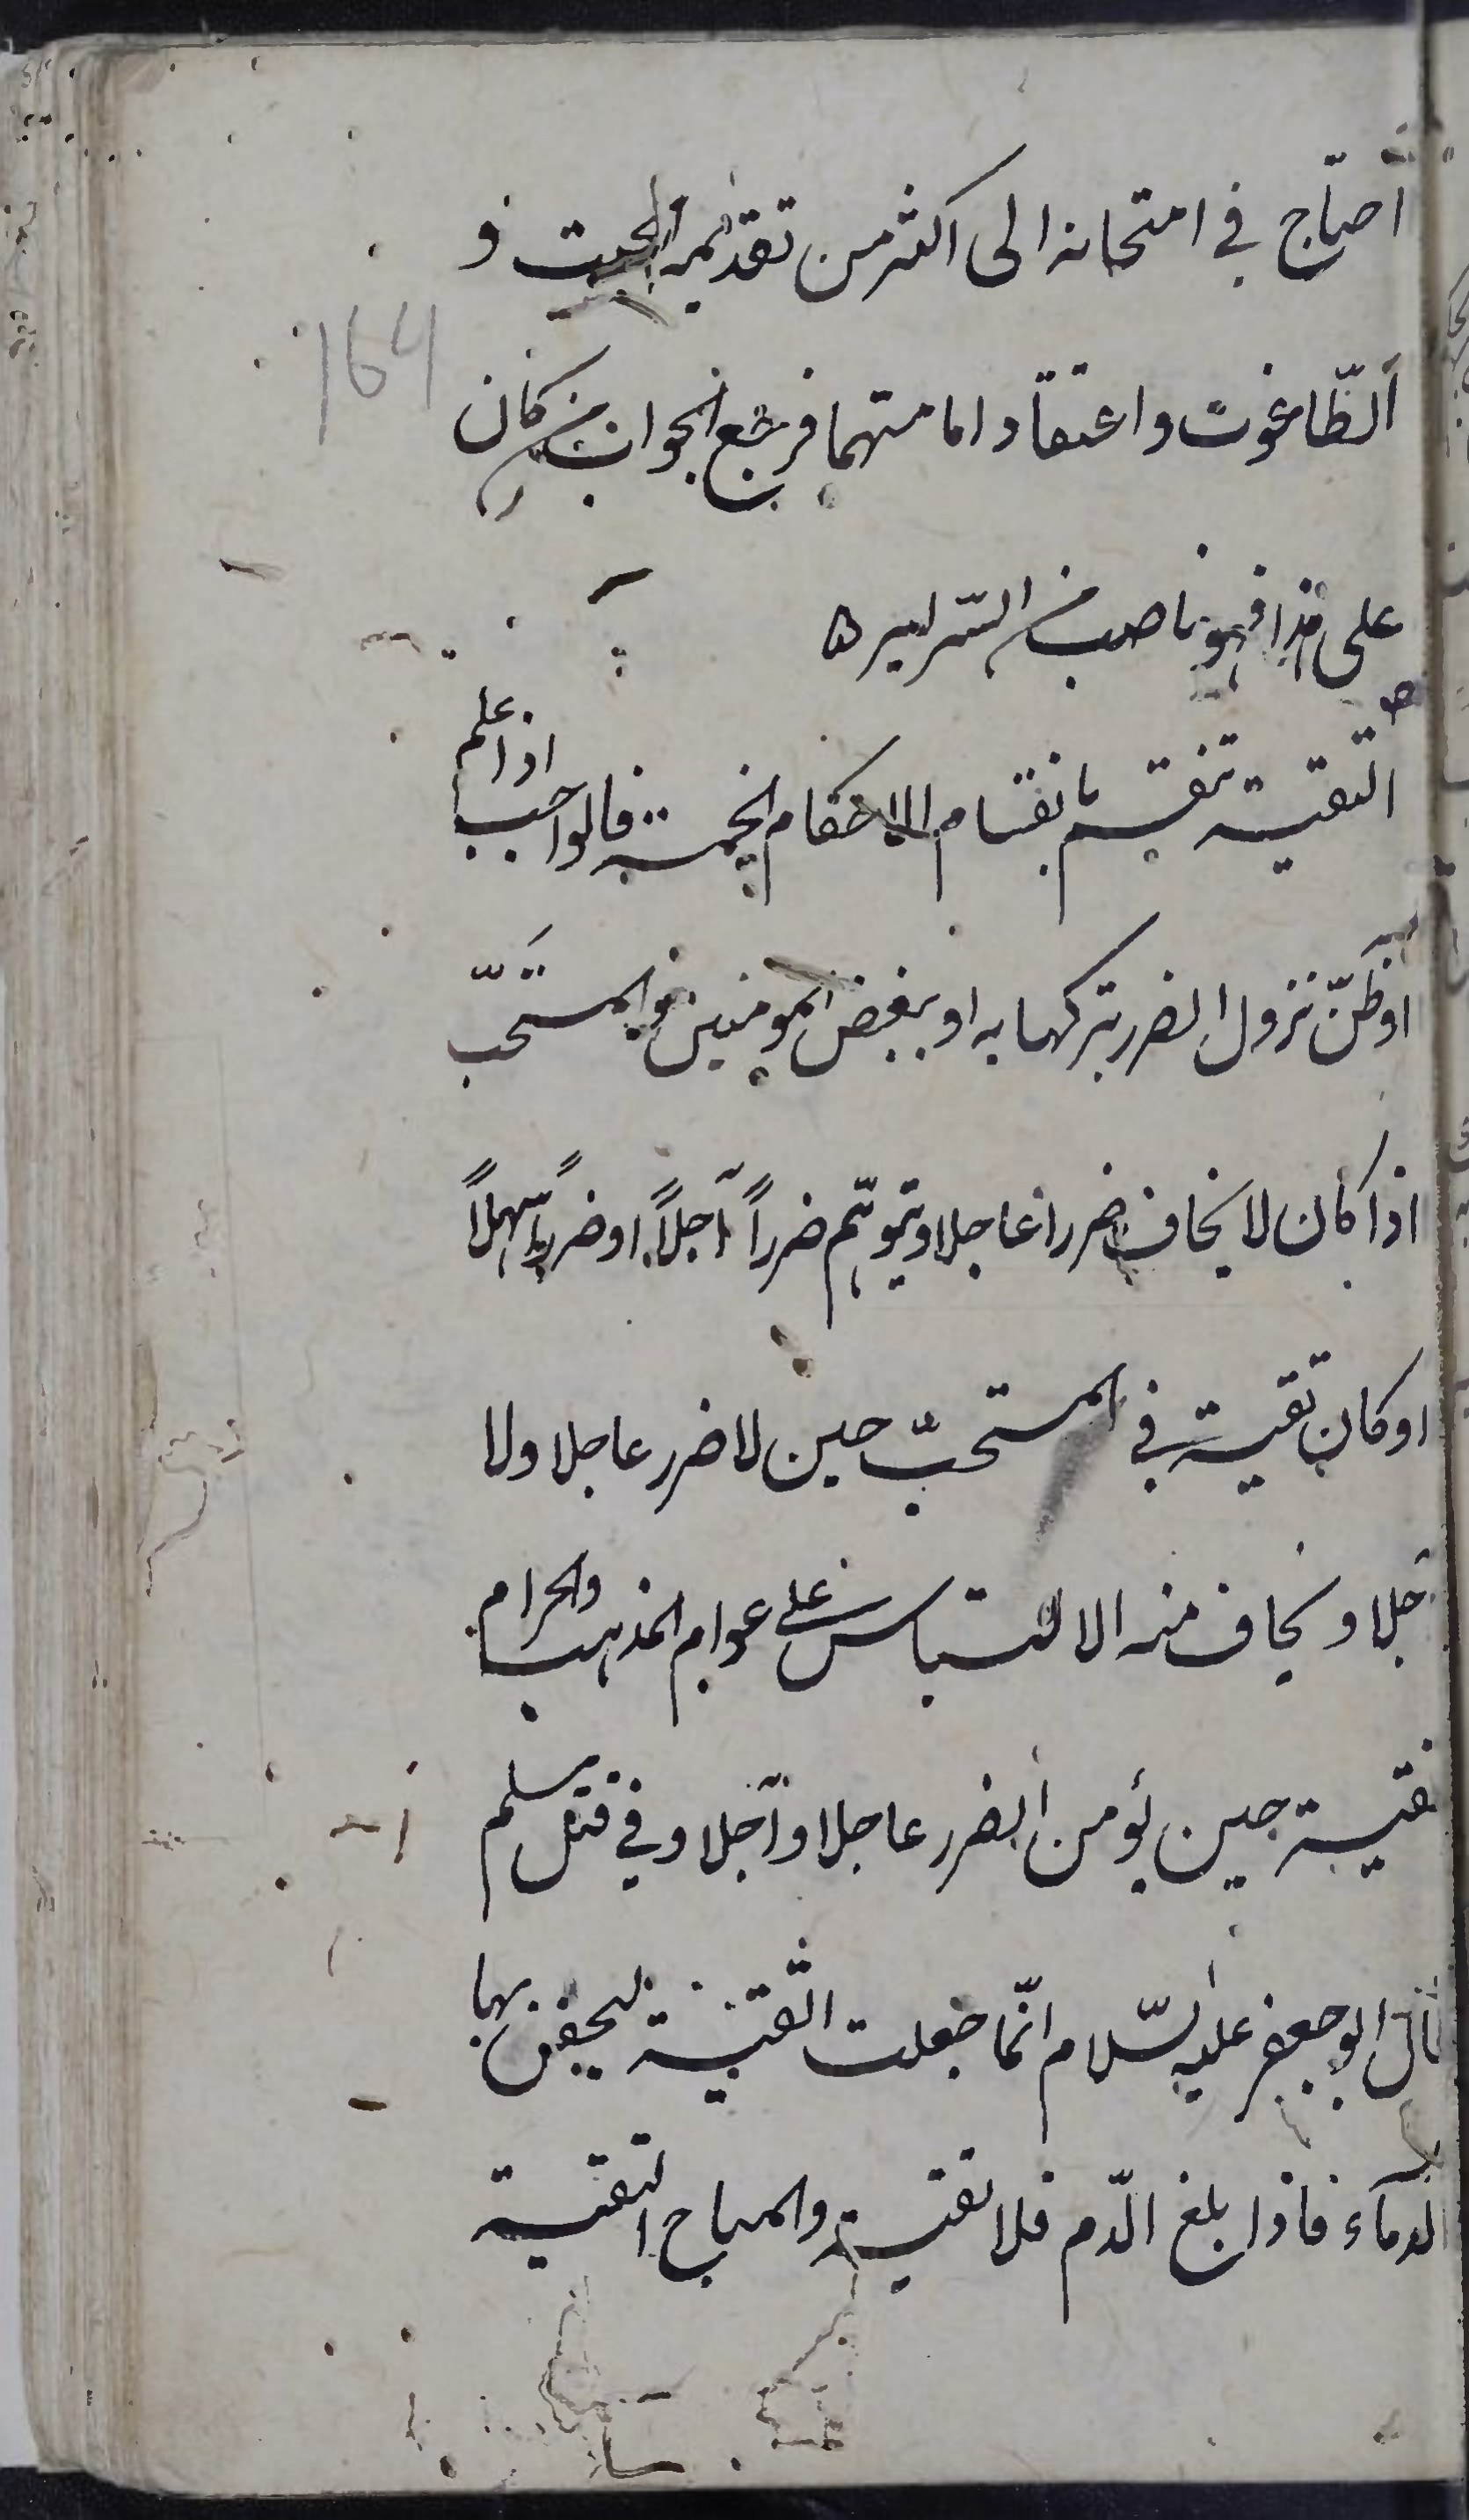 احتاج في امتحانه الى اكثر من تقديمه الجبت و
164
الطّاغوت واعتقاد امامتهما فرجع الجواب من كان
على هذا فهو ناصب من السرايره
التقيه تنقسم بانقسام الاحكام الخمسة فالواجب اذا علم
او ظنّ نزول الضرر بتركها به او ببعض المومنين والمستحبّ
اذا كان لا يخاف ضررا عاجلا ويتوهّم ضرراً آجلاً او ضرراً سهلاً
او كان تقية في المستحبّ حين لا ضرر عاجلا ولا
آجلا ويخاف منه الالتباس على عوام المذهب والحرام
التقية حين يؤمن الضرر عاجلا وآجلا وفي قتل مسلم
قال ابو جعفر عليه السّلام انّما جعلت التّقية ليحقن بها
الدمآء فاذا بلغ الدّم فلا تقية والمباح التقية